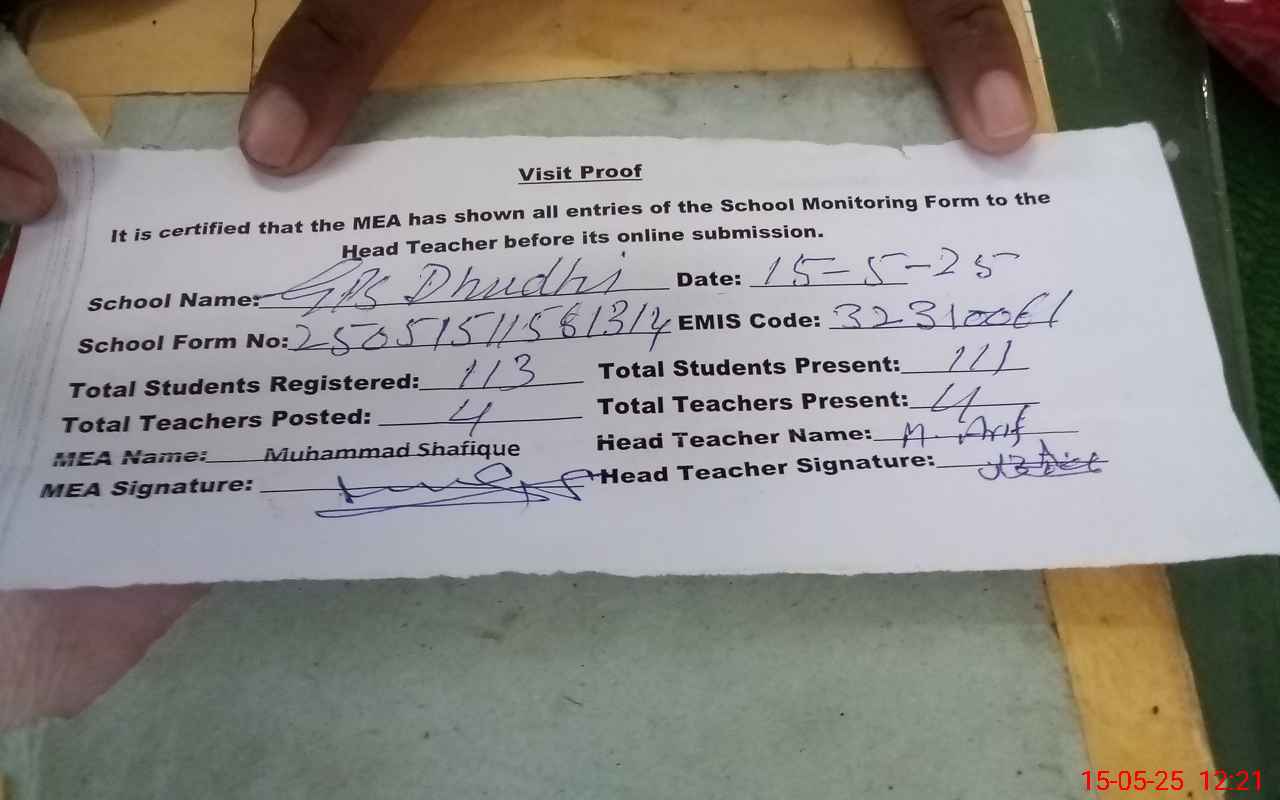 Visit Proof
It is certified that the MEA has shown all entries of the School Monitoring Form to the
Head Teacher before its online submission.
School Name: GPS Dhudhi Date: 15-5-25
School Form No: 25051511581314 EMIS Code: 32310061
Total Students Registered: 113 Total Students Present: 111
Total Teachers Posted: 4 Total Teachers Present: 4
MEA Name: Muhammad Shafique Head Teacher Name: M. Arif
MEA Signature: Head Teacher Signature:
15-05-25 12:21